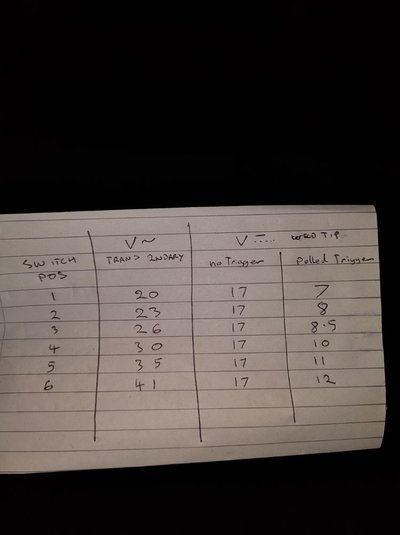 V~ V⎓ TIP
SWITCH POS TRANS 2NDARY no Trigger Pulled Trigger
1 20 17 7
2 23 17 8
3 26 17 8.5
4 30 17 10
5 35 17 11
6 41 17 12